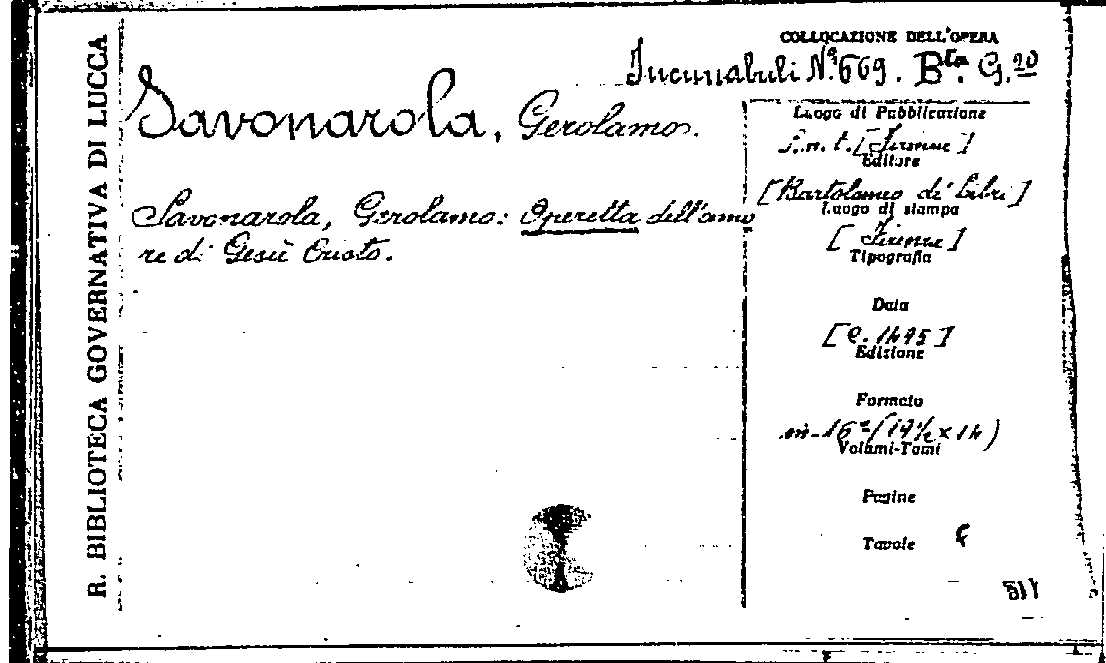 R. BIBLIOTECA GOVERNATIVA DI LUCCA
COLLOCAZIONE DELL'OPERA
Incunabuli N.º 669. Bta. G.
Savonarola, Gerolamo.
Savonarola, Gerolamo: Operetta dell'amo
re di Gesù Cristo.
Luogo di Pubblicazione
S.n.t. [Firenze]
Editore
[Bartolomeo di' Libri]
Luogo di stampa
[Firenze]
Tipografia
Data
[c. 1495]
Edizione
Formato
in-16º (19½ x 14)
Volumi-Tomi
Pagine
Tavole